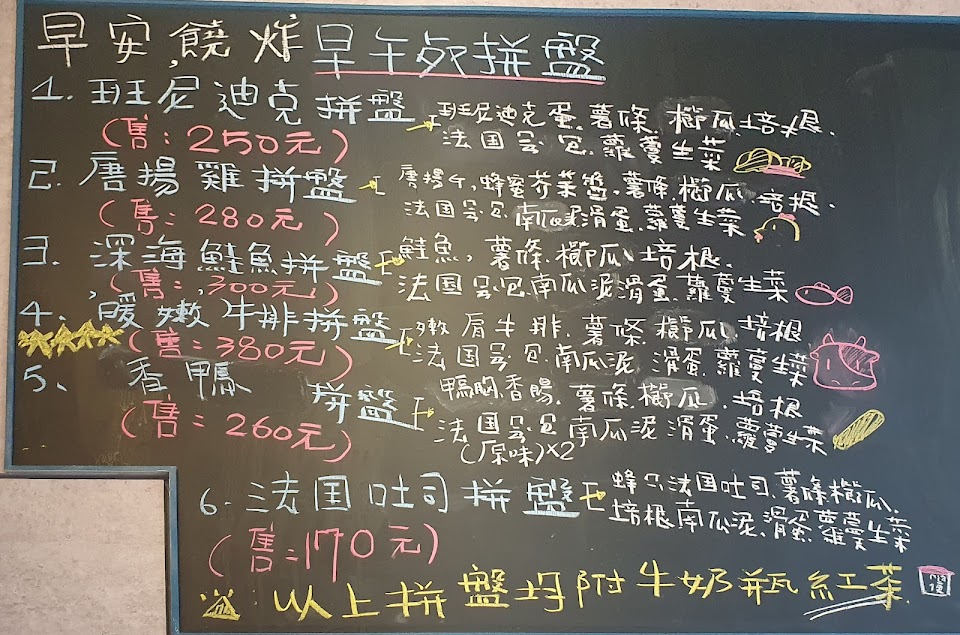 早安,饒炸早午歺拼盤
1. 班尼迪克拼盤
(售:250元)
班尼迪克蛋.薯條.櫛瓜.培根.
法国包.蘿蔓生菜
2. 唐揚雞拼盤
(售:280元)
唐揚,蜂蜜芥茉醬.薯條.櫛瓜.培根.
法国包.南瓜泥滑蛋.蘿蔓生菜
3. 深海鮭魚拼盤
(售:300元)
鮭魚,薯條.櫛瓜.培根.
法国包.南瓜泥滑蛋.蘿蔓生菜
4. 暖嫩牛排拼盤
(售:380元)
嫩肩牛排.薯條.櫛瓜.培根
法国包.南瓜泥 滑蛋.蘿蔓生菜
5、香鴨拼盤
(售:260元)
鴨胸香腸.薯條.櫛瓜.培根
法国包南瓜泥 滑蛋.蘿蔓生菜
(原味)x2
6. 法国吐司拼盤
(售:170元)
法国吐司.薯條櫛瓜.
培根南瓜泥.滑蛋蘿蔓生菜
以上拼盤均附牛奶瓶紅茶.